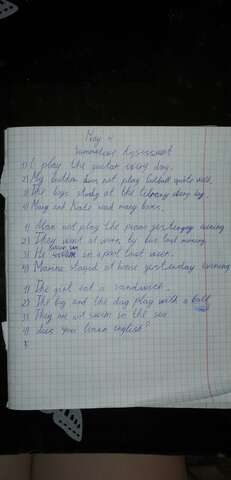 May 4
Summative Assessment
1) I play the guitar every day.
2) My brother does not play football quite well.
3) The boys study at the library every day.
4) Mary and Kate read many books.
1) Alan not play the piano yesterday evening
2) They went at work by bus last morning.
3) He in a port last week.
4) Marina stayed at home yesterday evening
1) The girl eat a sandwich.
2) The boy and the dog play with a ball
3) They are not swim in the sea
4) does you learn english?